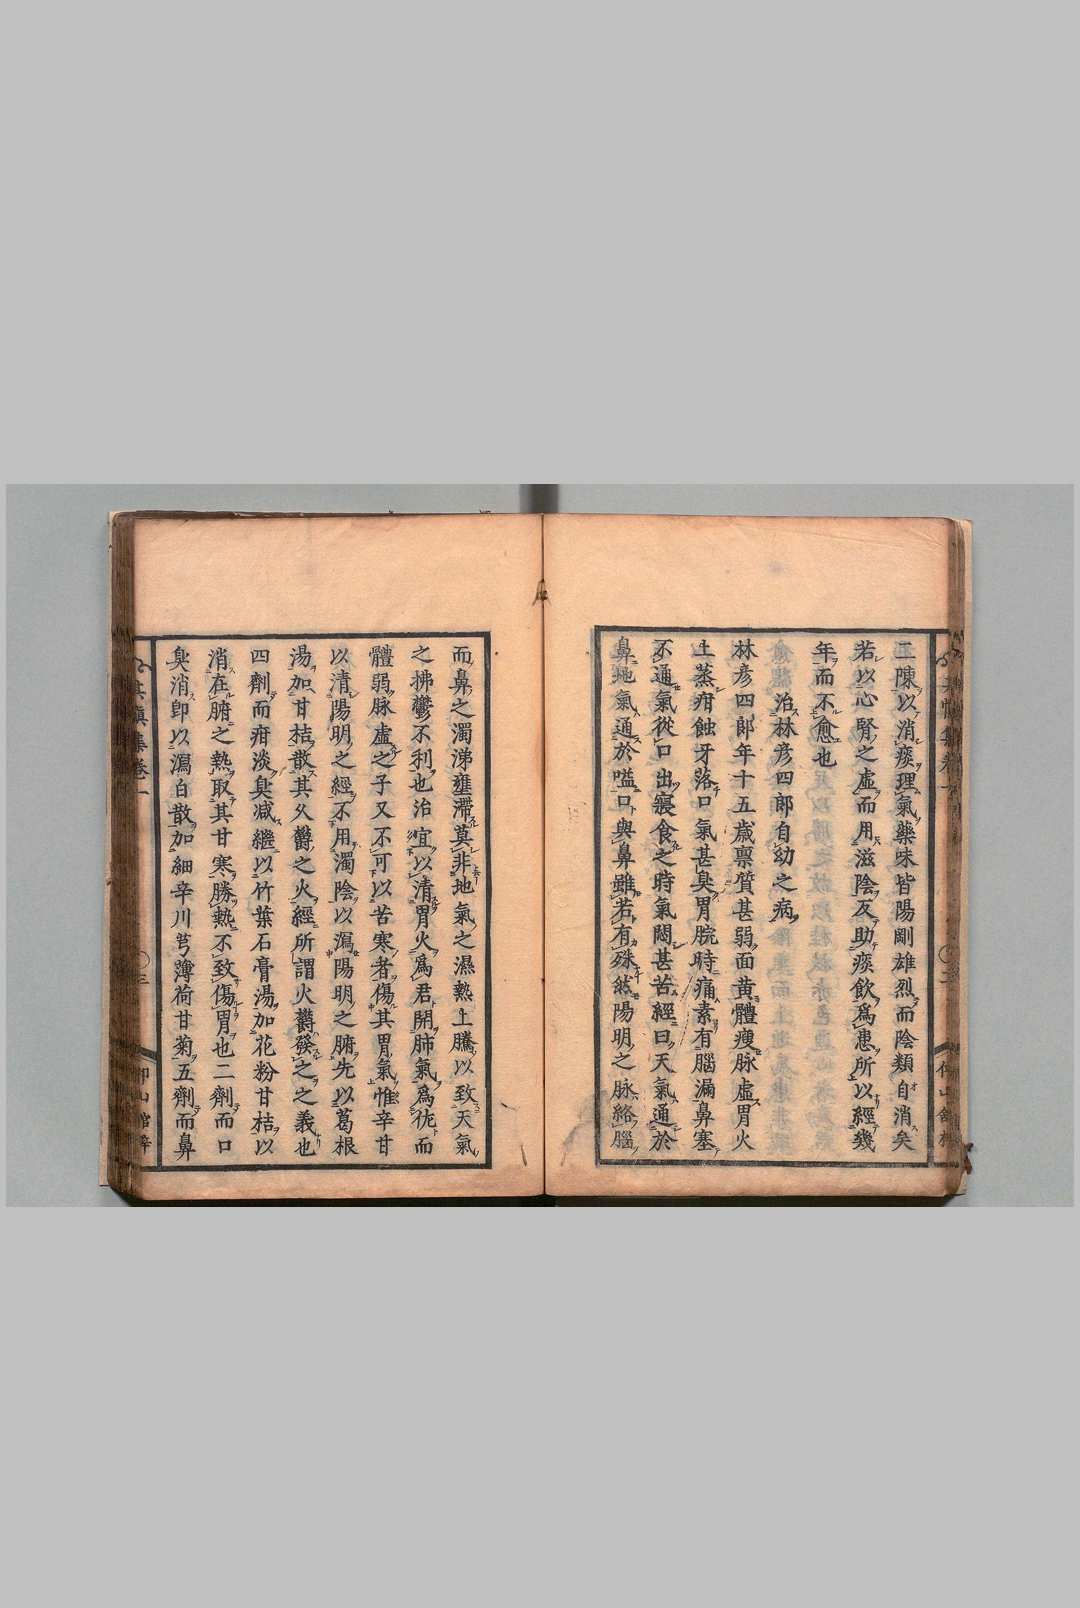 二陳以消痰理氣藥味皆陽剛雄烈而陰類自消矣
若以心腎之虛而用滋陰反助痰飲爲患所以經幾
年而不愈也
治林彥四郎自幼之病
林彥四郎年十五歲稟質甚弱面黃體瘦脉虛胃火
上蒸疳蝕牙落口氣甚臭胃脘時痛素有腦漏鼻塞
不通氣從口出寢食之時氣悶甚苦經曰天氣通於
鼻地氣通於嗌口與鼻雖若有殊然陽明之脉絡腦
而鼻之濁涕壅滯莫非地氣之濕熱上騰以致天氣
之拂鬱不利也治宜以清胃火爲君開肺氣爲佐而
體弱脉虛之子又不可下以苦寒者傷其胃氣惟辛甘
以清陽明之經不用濁陰以瀉陽明之腑先以葛根
湯加甘桔散其久鬱之火經所謂火鬱發之之義也
四劑而疳淡臭減繼以竹葉石膏湯加花粉甘桔以
消在腑之熱取其甘寒勝熱不致傷胃也二劑而口
臭消卽以瀉白散加細辛川芎薄荷甘菊五劑而鼻
集卷一
三